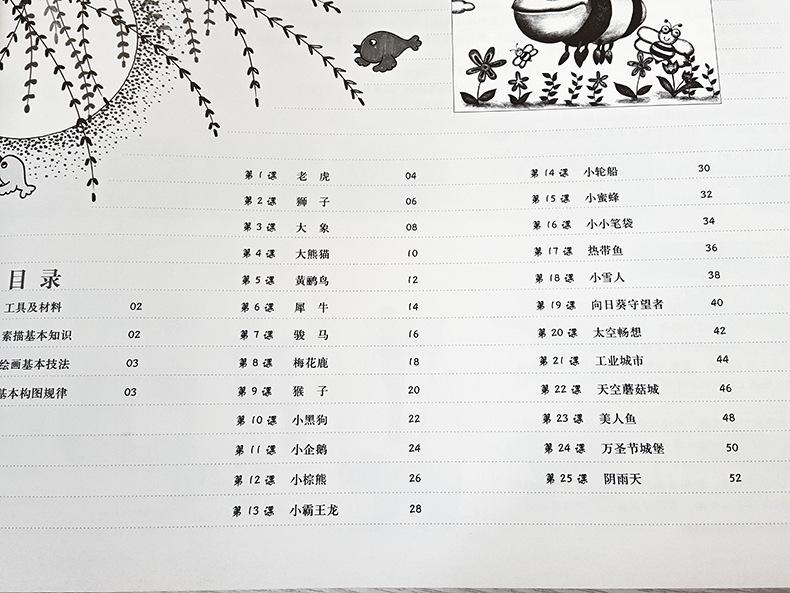 目 录
工具及材料 02
素描基本知识 02
绘画基本技法 03
基本构图规律 03
第 1 课 老 虎 04
第 2 课 狮 子 06
第 3 课 大 象 08
第 4 课 大熊猫 10
第 5 课 黄鹂鸟 12
第 6 课 犀 牛 14
第 7 课 骏 马 16
第 8 课 梅花鹿 18
第 9 课 猴 子 20
第 10 课 小黑狗 22
第 11 课 小企鹅 24
第 12 课 小棕熊 26
第 13 课 小霸王龙 28
第 14 课 小轮船 30
第 15 课 小蜜蜂 32
第 16 课 小小笔袋 34
第 17 课 热带鱼 36
第 18 课 小雪人 38
第 19 课 向日葵守望者 40
第 20 课 太空畅想 42
第 21 课 工业城市 44
第 22 课 天空蘑菇城 46
第 23 课 美人鱼 48
第 24 课 万圣节城堡 50
第 25 课 阴雨天 52